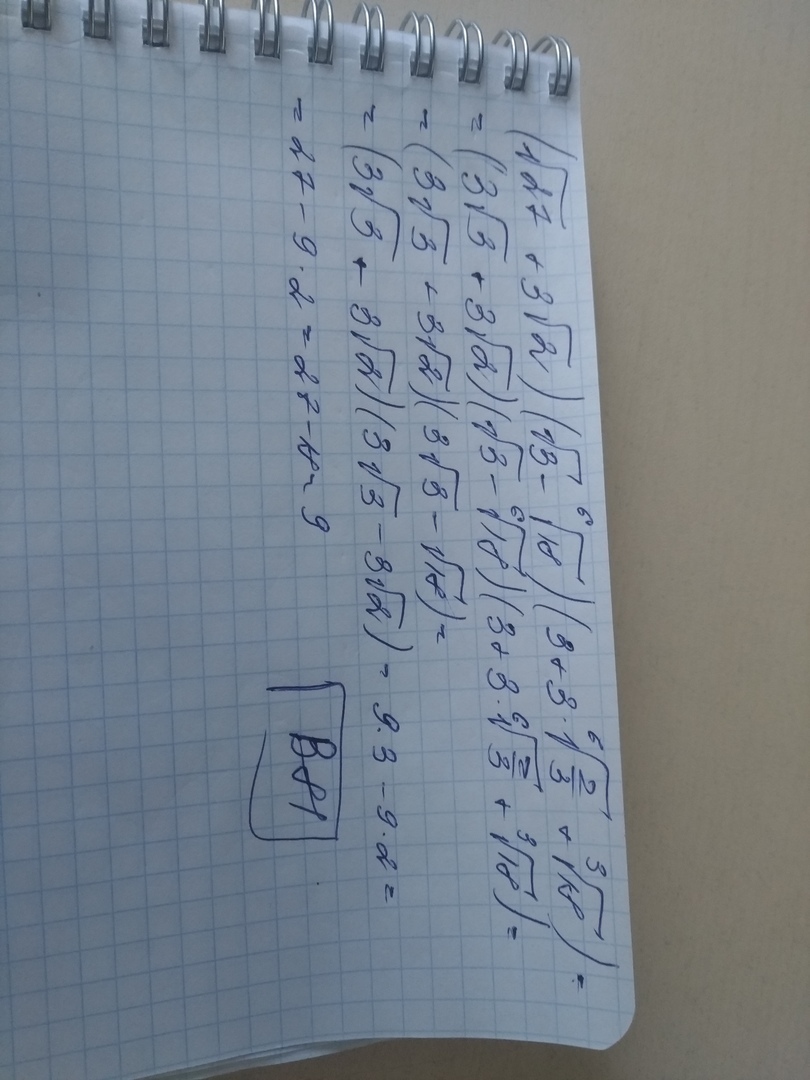 (√27 + 3√2)(√3 - ⁶√18)(3 + 3·⁶√(2/3) + ³√18) =
= (3√3 + 3√2)(√3 - ⁶√18)(3 + 3·⁶√(2/3) + ³√18) =
= (3√3 + 3√2)(3√3 - √18) =
= (3√3 + 3√2)(3√3 - 3√2) = 9·3 - 9·2 =
= 27 - 9·2 = 27 - 18 = 9